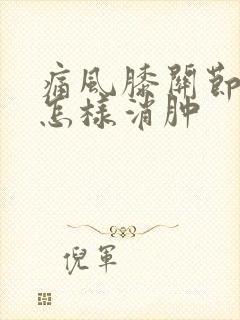 痛風膝關節
怎樣消肿
倪軍